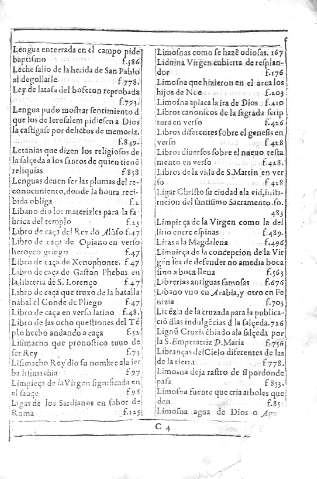 Lengua enterrada en el campo pide
baptismo f.586
Leche salio de la herida de San Pablo
al degollarle f.778.
Ley de la tasa del
f.793.
Lengua pudo mostrar sentimiento de
que los de Ierusalem pidiesen a Dios
la castigase por delictos de memoria.
f.849.
Letanias que dizen los religiosos de
la salçeda a los santos de quien tienē
reliquias f 858
Lenguas deuen ser las plumas del re-
conocimiento, donde la honra reci-
bida obliga f.2
Libano dio los materiales para la fa-
brica del templo f.25
Libro de caça del Rey do Alōso f.47
Libro de caça de Opiano en verso
heroyco griego f.47
Libro de caça de Xenophonte. f.47
Libro de caça de Gaston Phebus en
la libreria de S. Lorenço f.47
Libro de caça que truxo de la batalla
nabal el Conde de Pliego f.47
Libro de caça en verso latino f.48.
Libro de las ocho questiones del Tē
plo hecho andando a caça f.52
Lisimacho que pronostico tuuo de
ser Rey f.75
Lisimacho Rey dio su nombre a la ier
ba lisimachia f 97
Limpieça de la Virgen significada en
el sauçe f.98
Ligas de los Sardianos en sabor de
Roma f.125
Limosnas como se hazē odiosas. 167
Lidnina Virgen cubierta de resplan-
dor f.176
Limosna que hizieron en el arca los
hijos de Noe f.203
Limosna aplaca la ira de Dios f.410
Libros canonicos de la sagrada scrip
tura en verso f.426
Libros diferentes sobre el genesis en
verso f.428
Libros diuersos sobre el nueuo testa
mento en verso f.428.
Libros de la vida de S. Martin en ver
so f 428
Ligar Christo su ciudad a la
lacion del santissimo Sacramento. fo.
483
Limpieça de la Virgen como la del
lirio entre espinas f.489.
Liras a la Magdalena f.496
Limpieça de la concepcion de la Vir
gen lea de defender no a media boca
sino a boca llena f.563
Librerias antiguas famosas f.676
Libano vno en Arabia, y otro en Fe
nicia f.703
Licēcia de la cruzada para la publica-
ciō dlas indulgēcias d la salçeda. 726
Lignū Crucis ēbiado a la salçeda por
la S. Emperatriz D. Maria f.756
Libranças del Cielo diferentes de las
de la tierra f.778.
Limosna deja rastro de si por donde
pasa f 833.
Limosna fuente que cria arboles que
den f.85
Limosna agua de Dios o
C 4